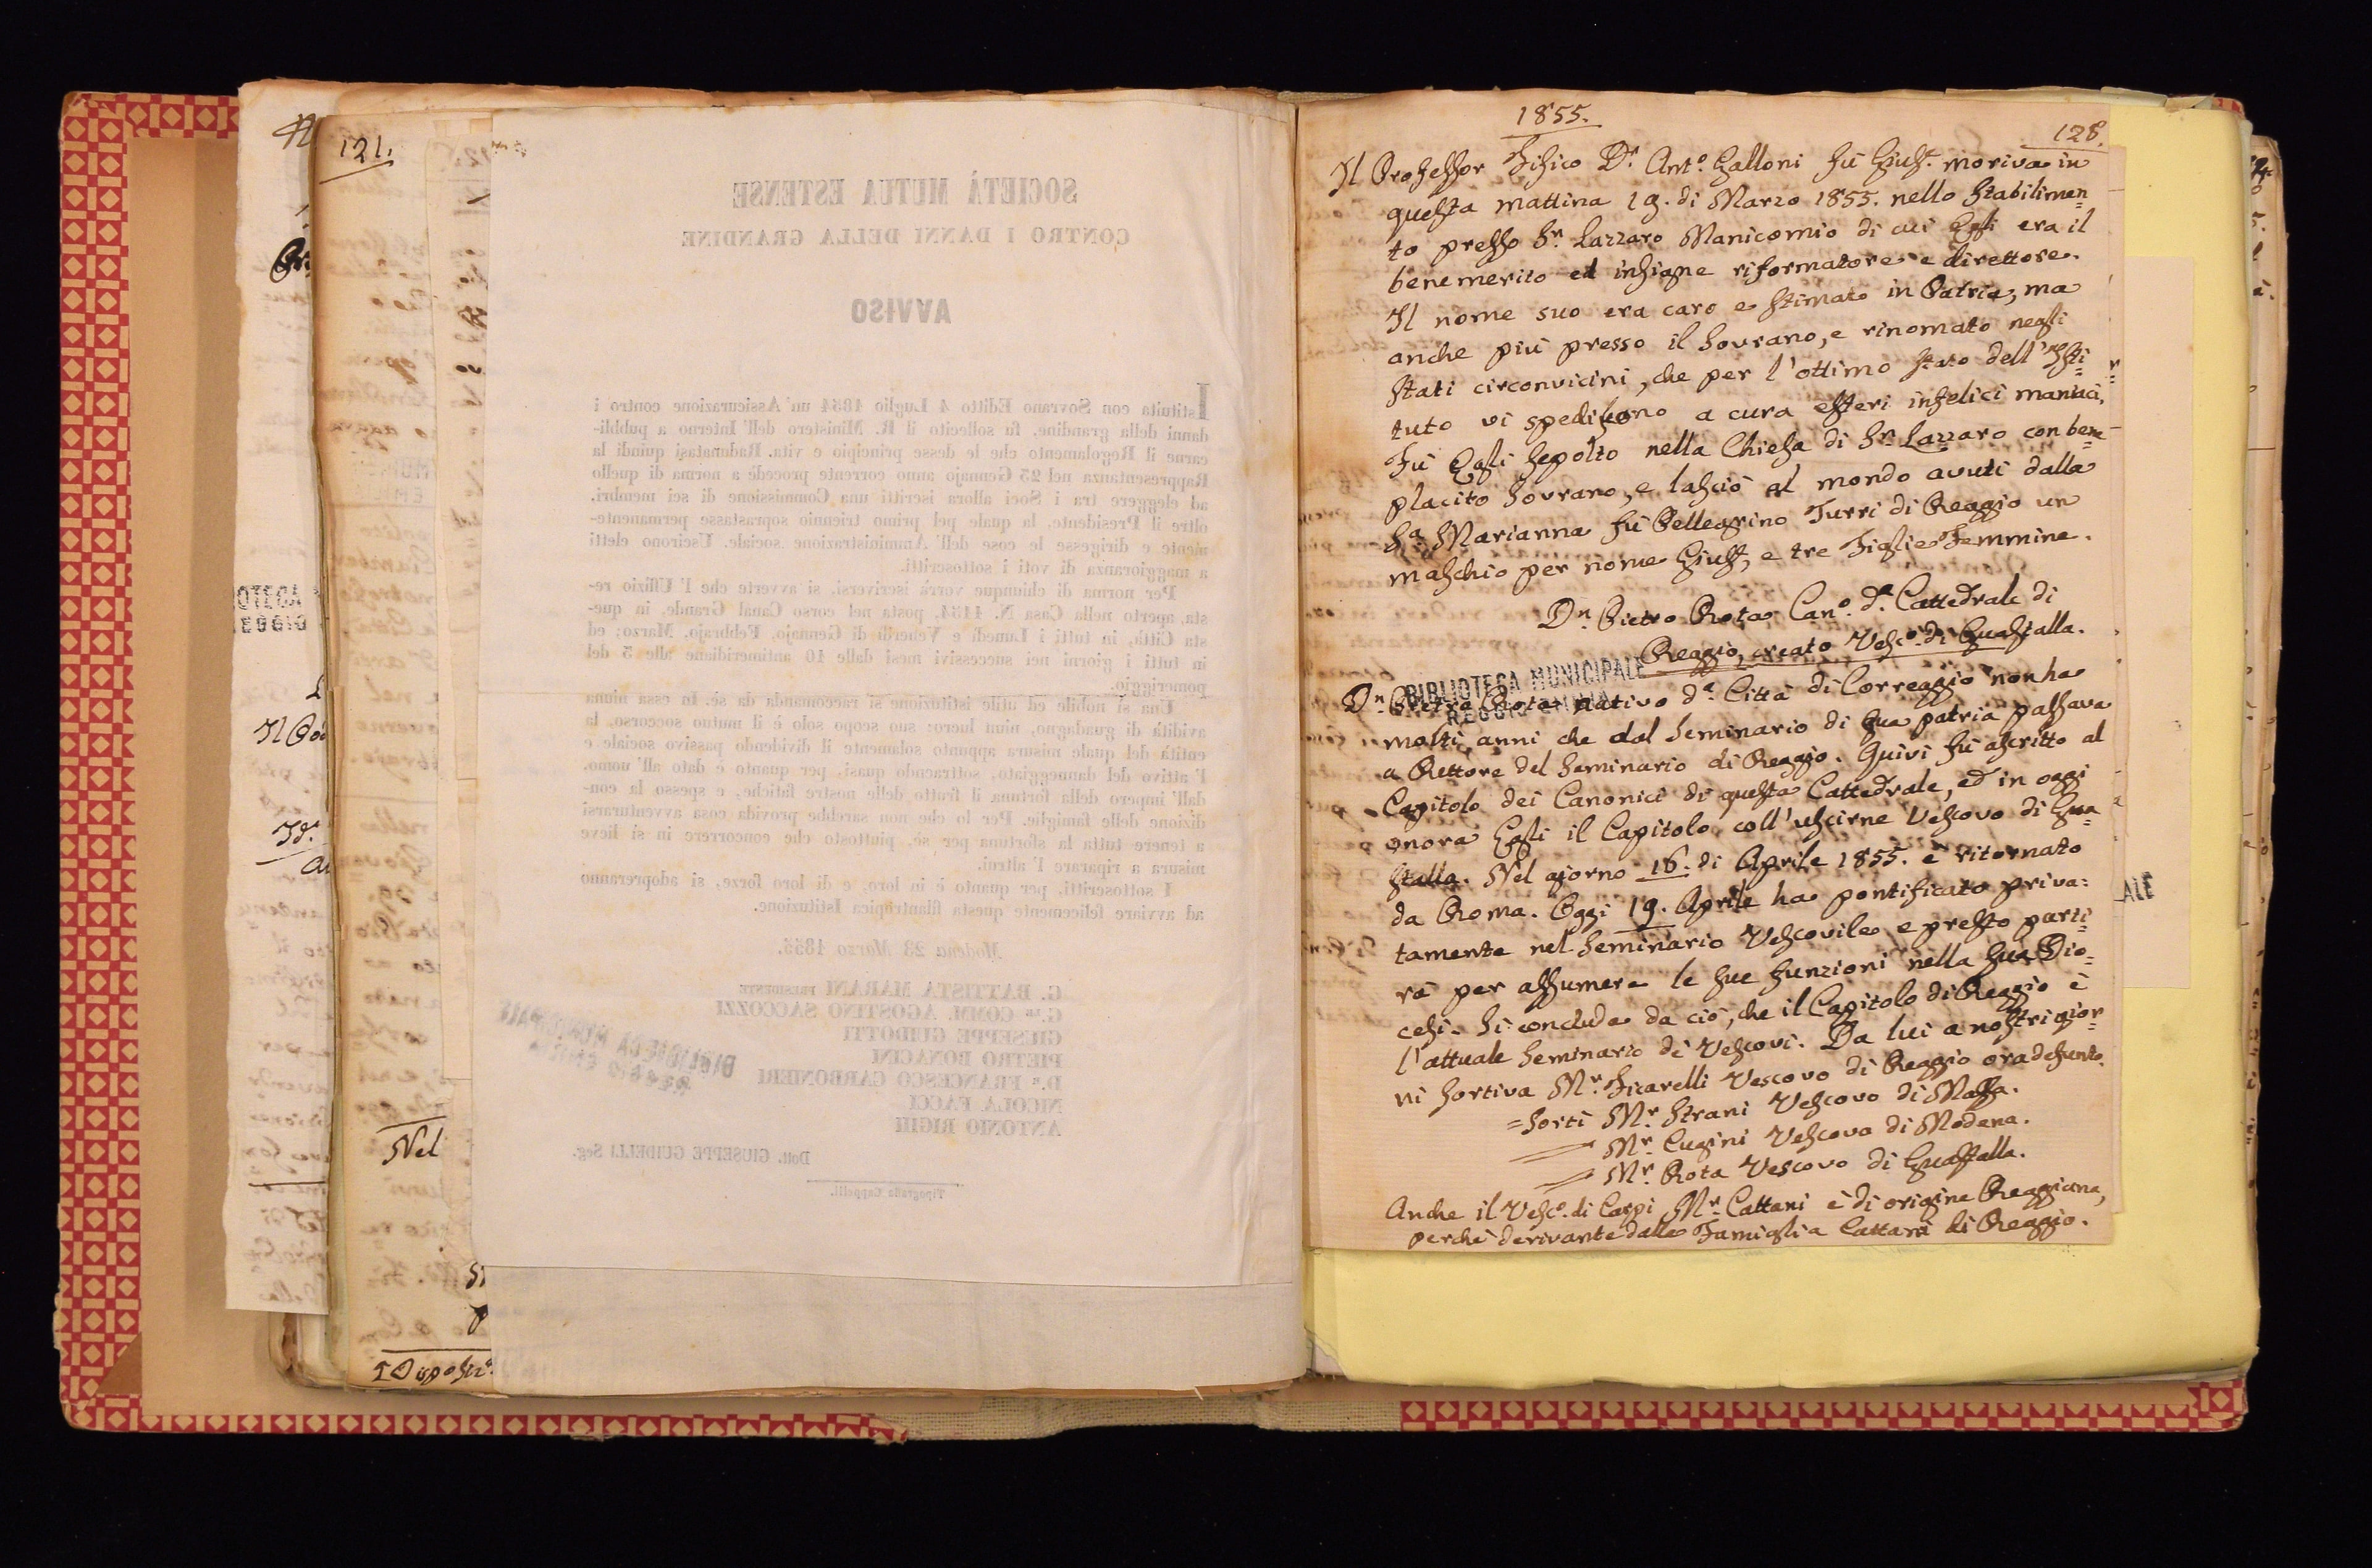 121.
Nel
SOCIETÀ MUTUA ESTENSE
CONTRO I DANNI DELLA GRANDINE
AVVISO
Istituita con Sovrano Editto 4 Luglio 1854 un'Assicurazione contro i
danni della grandine, fu sollecito il R. Ministero dell'Interno a pubbli-
carne il Regolamento che le desse principio e vita. Radunatasi quindi la
Rappresentanza nel 25 Gennajo anno corrente procedè a norma di quello
ad eleggere tra i Soci allora iscritti una Commissione di sei membri,
oltre il Presidente, la quale pel primo triennio soprastasse permanente-
mente e dirigesse le cose dell'Amministrazione sociale. Uscirono eletti
a maggioranza di voti i sottoscritti.
Per norma di chiunque vorrà iscriversi, si avverte che l'Uffizio re-
sta aperto nella Casa N. 1154, posta nel corso Canal Grande, in que-
sta Città, in tutti i Lunedì e Venerdì di Gennajo, Febbrajo, Marzo; ed
in tutti i giorni nei successivi mesi dalle 10 antimeridiane alle 3 del
pomeriggio.
Una sì nobile ed utile istituzione si raccomanda da sè. In essa niuna
avidità di guadagno, niun lucro: suo scopo solo è il mutuo soccorso, la
entità del quale misura appunto solamente il dividendo passivo sociale e
l'attivo del danneggiato, sottraendo quasi, per quanto è dato all'uomo,
dall'impero della fortuna il frutto delle nostre fatiche, e spesso la con-
dizione delle famiglie. Per lo che non sarebbe provida cosa avventurarsi
a tenere tutta la sfortuna per sè, piuttosto che concorrere in sì lieve
misura a riparare l'altrui.
I sottoscritti, per quanto è in loro, e di loro forze, si adopreranno
ad avviare felicemente questa filantropica Istituzione.
Modena 23 Marzo 1855.
G. BATTISTA MARANI PRESIDENTE
COMM. AGOSTINO SACCOZZI
GIUSEPPE GUIDOTTI
PIETRO BONACINI
D.r FRANCESCO CARBONIERI
NICOLA FACCI
ANTONIO RIGHI
Dott. GIUSEPPE GUIDELLI Seg.
Tipografia Cappelli.
BIBLIOTECA MUNICIPALE
REGGIO EMILIA
1855.
128.
Il Professor Fisico D.r Ant.o Galloni fù Gius.e moriva in
questa mattina 19. di Marzo 1855. nello Stabilimen=
to presso S.n Lazzaro Manicomio di cui Egli era il
benemerito ed insigne riformatore e direttore.
Il nome suo era caro e stimato in Patria, ma
anche più presso il Sovrano, e rinomato negli
Stati circonvicini, che per l'ottimo stato dell'Isti=
tuto vi spedivano a cura esteri infelici maniaci,
Fù Egli sepolto nella Chiesa di S.n Lazzaro con bene=
placito Sovrano, e lasciò al mondo avuti dalla
S.a Marianna fù Pellegrino Turri di Reggio un
maschio per nome Gius.e, e tre Figlie Femmine.
D.n Pietro Rota Can.o d.a Cattedrale di
Reggio, creato Vesc.o di Guastalla.
BIBLIOTECA MUNICIPALE
REGGIO EMILIA
D.n Pietro Rota nativo d.a Città di Correggio non ha
molti anni che dal Seminario di sua patria passava
a Rettore del Seminario di Reggio. Quivi fù ascritto al
Capitolo dei Canonici di questa Cattedrale, ed in oggi
onora Egli il Capitolo coll'uscirne Vescovo di Gua=
stalla. Nel giorno 16. di Aprile 1855. è ritornato
da Roma. Oggi 19. Aprile ha pontificato priva=
tamente nel Seminario Vescovile e presto parti=
rà per assumere le sue funzioni nella sua Dio=
cesi. Si conclude da ciò, che il Capitolo di Reggio è
l'attuale Seminario dè Vescovi. Da lui a nostri gior=
ni sortiva M.r Ficarelli Vescovo di Reggio ora defunto.
= Sortì M.r Strani Vescovo di Massa.
= M.r Cugini Vescovo di Modena.
= M.r Rota Vescovo di Guastalla.
Anche il Vesc.o di Carpi M.r Cattani è di origine Reggiana,
perchè derivante dalla Famiglia Cattani di Reggio.